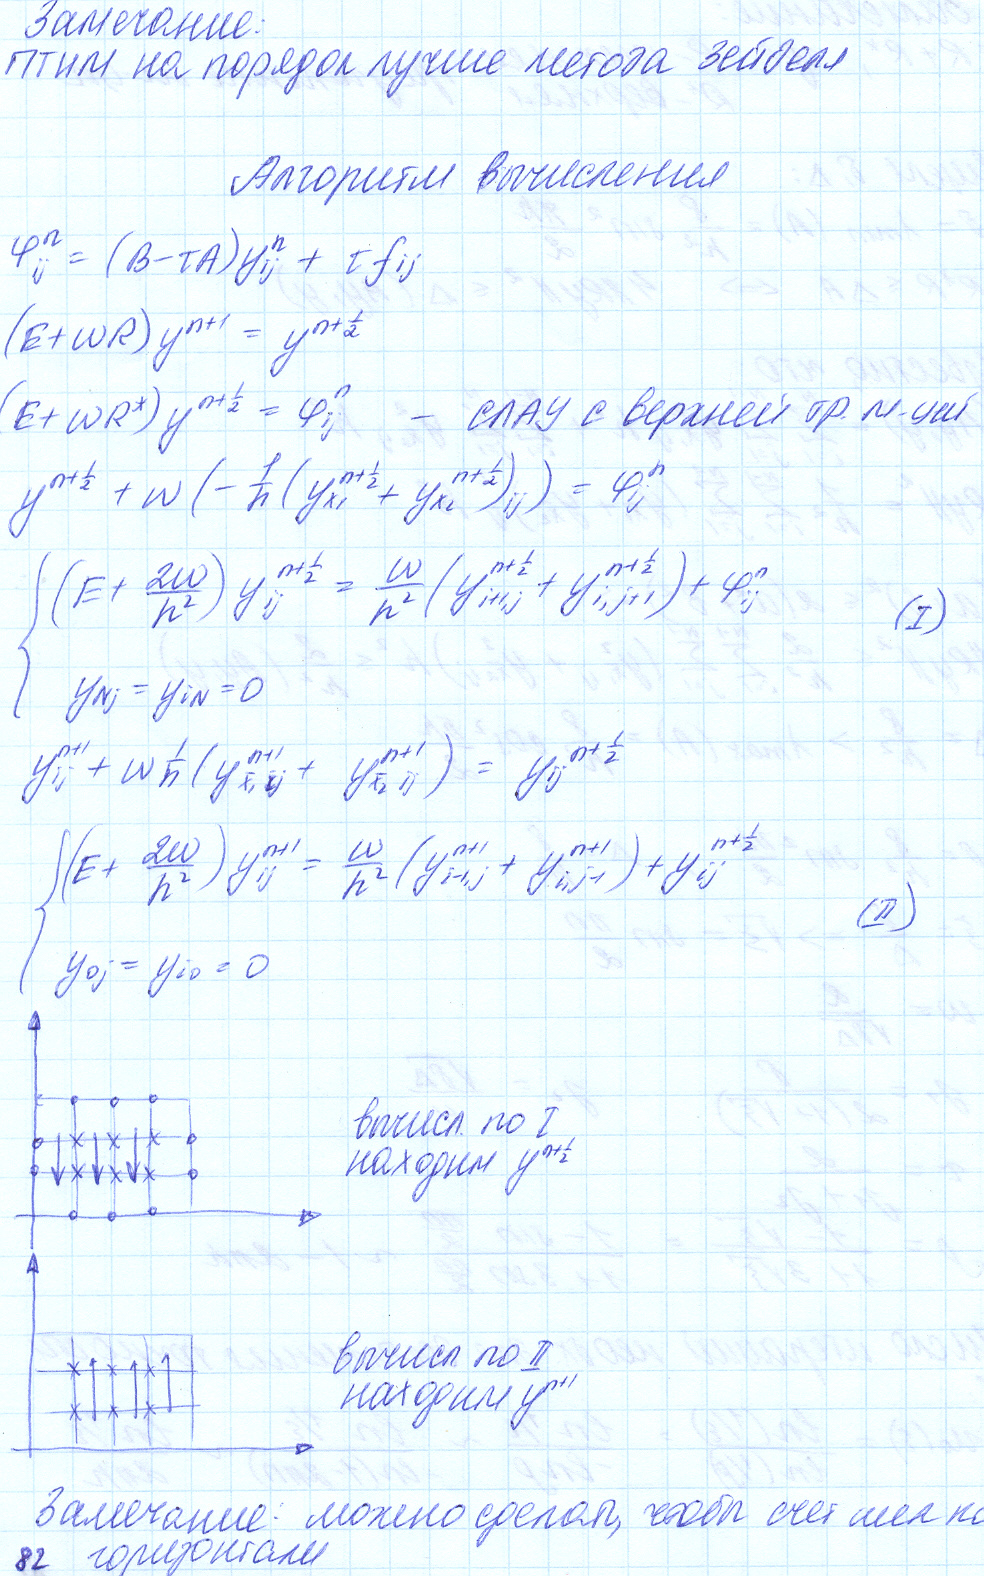 Замечание:
ПТИМ на порядок лучше метода Зейделя
Алгоритм вычисления
φᵢⱼⁿ = (B-τA)yᵢⱼⁿ + τfᵢⱼ
(E+wR)yⁿ⁺¹ = y^{n+1/2}
(E+wR*)y^{n+1/2} = φᵢⱼⁿ - СЛАУ с верхней тр. м-цей
y^{n+1/2} + w(-1/h(y_{x₁}^{n+1/2} + y_{x₂}^{n+1/2})ᵢⱼ) = φᵢⱼⁿ
(E + 2w/h²) yᵢⱼ^{n+1/2} = w/h² (y_{i+1,j}^{n+1/2} + y_{i,j+1}^{n+1/2}) + φᵢⱼⁿ
(I)
y_{Nj} = y_{iN} = 0
yᵢⱼ^{n+1} + w 1/h (y_{x̄₁,ij}^{n+1} + y_{x̄₂ij}^{n+1}) = yᵢⱼ^{n+1/2}
(E + 2w/h²) yᵢⱼ^{n+1} = w/h² (y_{i-1,j}^{n+1} + y_{i,j-1}^{n+1}) + yᵢⱼ^{n+1/2}
(II)
y_{0j} = y_{i0} = 0
вычисл. по I
находим y^{n+1/2}
вычисл. по II
находим y^{n+1}
Замечание: можно сделать, чтобы счет шел по
82 горизонтали